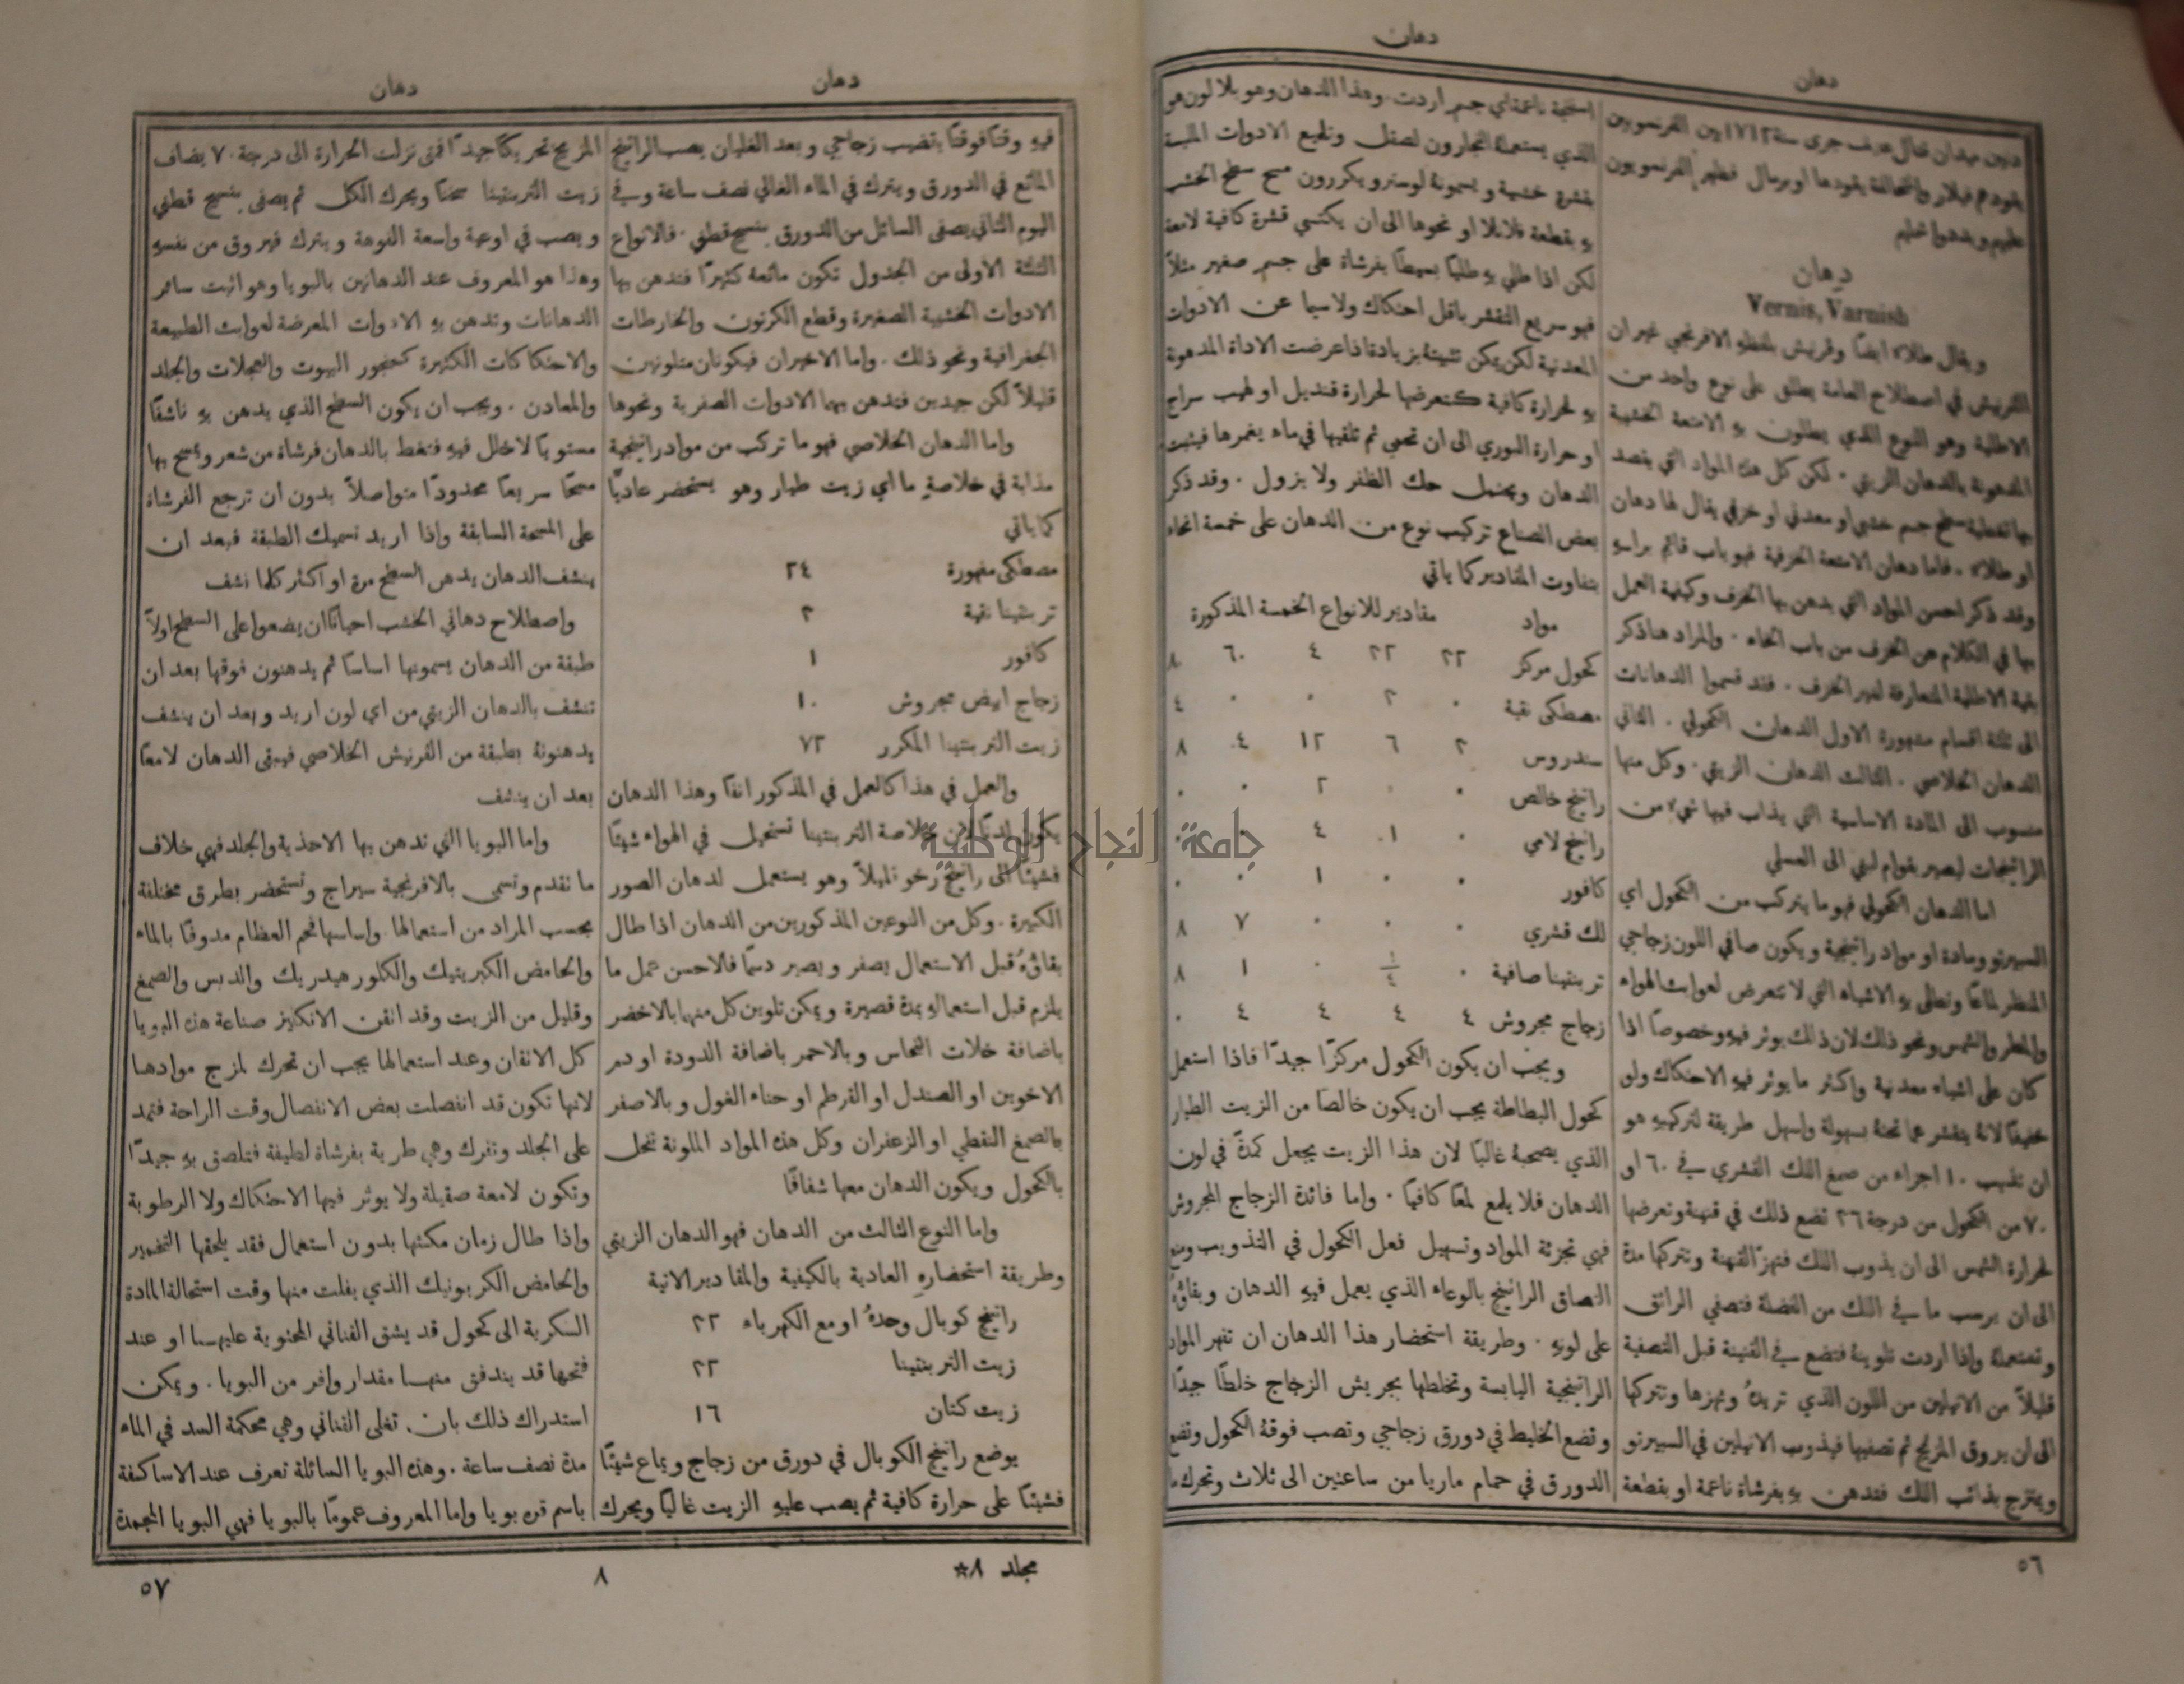 دهان
دهان
دنين ميدان قتال عنيف جرى سنة ١٧١٢ بين الفرنسويين
يقودهم فيلار والمحالفة يقودها اوبرمال فظهر الفرنسويون
عليهم وبدهوا شملهم
دِهان
Vernis, Varnish
ويقال طلاء ايضًا وفرنيش بلفظهِ الافرنجي غير ان
الفرنيش في اصطلاح العامة يطلق على نوع واحد من
الاطلية وهو النوع الذي يطلون به الامتعة الخشبية
المدهونة بالدهان الزيتي . لكن كل هذه المواد التي يقصد
بها تغطية سطح جسم خشبي او معدني او خزفي يقال لها دهان
او طلاء . فاما دهان الامتعة الخزفية فهو باب قائم براسهِ
وقد ذكر احسن المواد التي يدهن بها الخزف وكيفية العمل
بها في الكلام عن الخزف من باب الخاء . والمراد هنا ذكر
بقية الاطلية المتعارفة لغير الخزف . فقد قسموا الدهانات
الى ثلثة اقسام مشهورة الاول الدهان الكحولي . الثاني
الدهان الخلاصي . الثالث الدهان الزيتي . وكل منها
منسوب الى المادة الاساسية التي يذاب فيها شيء من
الراتينجات ليصير بقوام لبني الى العسلي
اما الدهان الكحولي فهو ما يتركب من الكحول اي
السبيرتو ومادة او مواد راتينجية ويكون صافي اللون زجاجي
المنظر لماعًا وتطلى به الاشياء التي لا تتعرض لعوابث الهواء
والمطر والشمس ونحو ذلك لان ذلك يوثر فيهِ وخصوصًا اذا
كان على اشياء معدنية واكثر ما يوثر فيهِ الاحتكاك ولو
خفيفًا لانهُ ينقشر عما تحتهُ بسهولة واسهل طريقة لتركيبهِ هو
ان تذيب ١٠ اجزاء من صمغ اللك القشري في ٦٠ او
٧٠ من الكحول من درجة ٣٦ تضع ذلك في قنينة وتعرضها
لحرارة الشمس الى ان يذوب اللك فتهزّ القنينة وتتركها مدة
الى ان يرسب ما في اللك من الفضلة فتصفي الرائق
وتستعملهُ واذا اردت تلوينهُ فتضع في القنينة قبل التصفية
قليلاً من الانيلين من اللون الذي تريدهُ وتهزها وتتركها
الى ان يروق المزيج ثم تصفيها فيذوب الانيلين في السبيرتو
ويمتزج بذائب اللك فتدهن به بفرشاة ناعمة او بقطعة
اسفنجية ناعمة اي جسم اردت . وهذا الدهان وهو بلا لون هو
الذي يستعملهُ النجارون لصقل وتلميع الادوات الملبسة
بقشرة خشبية ويسمونهُ لوسترو يكررون مسح سطح الخشب
به بقطعة فلانلا او نحوها الى ان يكتسي قشرة كافية لامعة
لكن اذا طلي به طليًا بسيطًا بفرشاة على جسم صغير مثلاً
فهو سريع التقشر باقل احتكاك ولا سيما عن الادوات
المعدنية لكن يمكن تثبيتهُ بزيادة اذا عرضت الاداة المدهونة
به لحرارة كافية كتعرضها لحرارة قنديل او لهيب سراج
او حرارة البوري الى ان تحمى ثم تلقيها في ماء يغمرها فيثبت
الدهان ويحتمل حك الظفر ولا يزول . وقد ذكر
بعض الصناع تركيب نوع من الدهان على خمسة انحاء
بتفاوت المقادير كما ياتي
مواد مقادير للانواع الخمسة المذكورة
كحول مركز ٢٢ ٢٢ ٤ ٦٠ ٨٠
مصطكى نقية ٠ ٢ ٠ ٠ ٤
سندروس ٢ ٦ ١٢ ٤٠ ٨
راتينج خالص ٠ ٠ ٢ ٠ ٠
راتينج لامي ٠ ١٠ ٤ ٠ ٠
كافور ٠ ٠ ١ ٠ ٠
لك قشري ٠ ٠ ٠ ٧ ٨
تربنتينا صافية ٠ ١/٤ ٠ ١ ٨
زجاج مجروش ٤ ٤ ٤ ٤ ٠
ويجب ان يكون الكحول مركزًا جيدًا فاذا استعمل
كحول البطاطة يجب ان يكون خالصًا من الزيت الطيار
الذي يصحبهُ غالبًا لان هذا الزيت يجعل كمدةً في لون
الدهان فلا يلمع لمعًا كافيًا . واما فائدة الزجاج المجروش
فهي تجزئة المواد وتسهيل فعل الكحول في التذويب ومنع
التصاق الراتينج بالوعاء الذي يعمل فيهِ الدهان وبقاؤهُ
على لونهِ . وطريقة استحضار هذا الدهان ان تنهر المواد
الراتينجية اليابسة وتخلطها بجريش الزجاج خلطًا جيدًا
وتضع الخليط في دورق زجاجي وتصب فوقهُ الكحول وتضع
الدورق في حمام ماريا من ساعتين الى ثلاث وتحرك ما
٥٦
دهان
دهان
فيهِ وقتًا فوقتًا بقضيب زجاجي وبعد الغليان يصب الراتينج
المائع في الدورق ويترك في الماء الغالي نصف ساعة وفي
اليوم الثاني يصفى السائل من الدورق بنسيج قطني . فالانواع
الثلثة الاولى من الجدول تكون مائعة كثيرًا فتدهن بها
الادوات الخشبية الصغيرة وقطع الكرتون والخارطات
الجغرافية ونحو ذلك . واما الاخيران فيكونان متلونين
قليلاً لكن جيدين فتدهن بهما الادوات الصفرية ونحوها
واما الدهان الخلاصي فهو ما تركب من مواد راتينجية
مذابة في خلاصةٍ ما اي زيت طيار وهو يستحضر عاديًا
كما ياتي
مصطكى منهورة ٢٤
تربنتينا نقية ٢
كافور ١
زجاج ابيض مجروش ١٠
زيت التربنتينا المكرر ٧٢
والعمل في هذا كالعمل في المذكور انفًا وهذا الدهان
يكون لدنًا لان خلاصة التربنتينا تستحيل في الهواء شيئًا
فشيئًا الى راتينج رخو قليلاً وهو يستعمل لدهان الصور
الكبيرة . وكل من النوعين المذكورين من الدهان اذا طال
بقاؤهُ قبل الاستعمال يصفر ويصير دسمًا فالاحسن عمل ما
يلزم قبل استعمالهِ بمدة قصيرة ويمكن تلوين كل منهما بالاخضر
باضافة خلات النحاس وبالاحمر باضافة الدودة او دم
الاخوين او الصندل او القرطم او حناء الغول وبالاصفر
بالصمغ النقطي او الزعفران وكل هذه المواد الملونة تنحل
بالكحول ويكون الدهان معها شفافًا
واما النوع الثالث من الدهان فهو الدهان الزيتي
وطريقة استحضارهِ العادية بالكيفية والمقادير الاتية
راتينج كوبال وحدهُ او مع الكهرباء ٢٢
زيت التربنتينا ٢٢
زيت كتان ١٦
يوضع راتينج الكوبال في دورق من زجاج ويماع شيئًا
فشيئًا على حرارة كافية ثم يصب عليهِ الزيت غاليًا ويحرك
المزيج تحريكًا جيدًا فمتى نزلت الحرارة الى درجة ٧٠ يضاف
زيت التربنتينا سخنًا ويحرك الكل ثم يصفى بنسيج قطني
ويصب في اوعية واسعة الفوهة ويترك فيروق من نفسهِ
وهذا هو المعروف عند الدهانين بالبويا وهو اثبت سائر
الدهانات وتدهن به الادوات المعرضة لعوابث الطبيعة
والاحتكاكات الكثيرة كحجور البيوت والعجلات والجلد
والمعادن . ويجب ان يكون السطح الذي يدهن به ناشفًا
مستويًا لا خلل فيهِ فتغط بالدهان فرشاة من شعر ويمسح بها
مسحًا سريعًا محدودًا متواصلاً بدون ان ترجع الفرشاة
على المسحة السابقة واذا اريد تسميك الطبقة فبعد ان
ينشف الدهان يدهن السطح مرة او اكثر كلما نشف
واصطلاح دهاني الخشب احيانًا ان يضعوا على السطح اولاً
طبقة من الدهان يسمونها اساسًا ثم يدهنون فوقها بعد ان
تنشف بالدهان الزيتي من اي لون اريد وبعد ان ينشف
يدهنونهُ بطبقة من الفرنيش الخلاصي فيبقى الدهان لامعًا
بعد ان ينشف
واما البويا التي تدهن بها الاحذية والجلد فهي خلاف
ما تقدم وتسمى بالافرنجية سيراج وتستحضر بطرق مختلفة
بحسب المراد من استعمالها واساسها فحم العظام مدوفًا بالماء
والحامض الكبريتيك والكلورهيدريك والدبس والصمغ
وقليل من الزيت وقد اتقن الانكليز صناعة هذه البويا
كل الاتقان وعند استعمالها يجب ان تحرك لمزج موادها
لانها تكون قد انفصلت بعض الانفصال وقت الراحة فتمد
على الجلد وتفرك وهي طرية بفرشاة لطيفة فتلصق به جيدًا
وتكون لامعة صقيلة ولا يوثر فيها الاحتكاك ولا الرطوبة
واذا طال زمان مكثها بدون استعمال فقد يلحقها التخمير
والحامض الكربونيك الذي يفلت منها وقت استحالة المادة
السكرية الى كحول قد يشق القناني المحتوية عليها او عند
فتحها قد يندفق منها مقدار وافر من البويا . ويمكن
استدراك ذلك بان تغلى القناني وهي محكمة السد في الماء
مدة نصف ساعة . وهذه البويا السائلة تعرف عند الاساكفة
باسم قره بويا واما المعروف عمومًا بالبويا فهي البويا المجمدة
مجلد ٨*
٨
٥٧
جامعة النجاح الوطنية